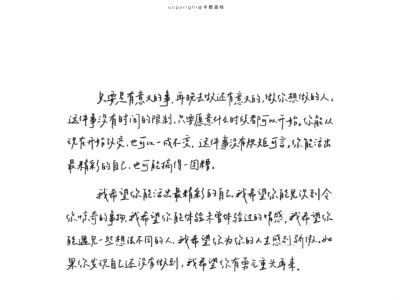 copyright@手颜荔枝
只要是有意义的事,再晚去做还有意义的,做你想做的人,
这件事没有时间的限制,只要愿意什么时候都可以开始。你能从
现在开始改变,也可以一成不变、这件事没有规矩可言。你能活出
最精彩的自己,也可能搞得一团糟。
我希望你能活出最精彩的自己,我希望你能见识到令
你惊奇的事物,我希望你能体验未曾体验过的情感,我希望你
能遇见一些想法不同的人,我希望你为你的人生感到骄傲。如
果你发现自己还没有做到,我希望你有勇气重头再来。